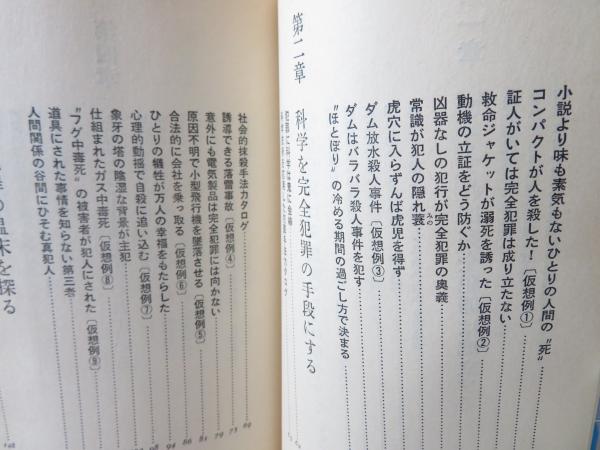 小説より味も素気もないひとりの人間の〝死〟
コンパクトが人を殺した!〔仮想例①〕
証人がいては完全犯罪は成り立たない
救命ジャケットが溺死を誘った〔仮想例②〕
動機の立証をどう防ぐか
凶器なしの犯行が完全犯罪の奥義
常識が犯人の隠れ蓑みの
虎穴に入らずんば虎児を得ず
ダム放水殺人事件〔仮想例③〕
ダムはバラバラ殺人事件を犯す
〝ほとぼり〟の冷める期間の過ごし方で決まる
第二章 科学を完全犯罪の手段にする
社会的抹殺手法カタログ 69
誘導できる落雷事故〔仮想例④〕 73
意外にも電気製品は完全犯罪には向かない 79
原因不明で小型飛行機を墜落させる〔仮想例⑤〕 81
合法的に会社を乗っ取る〔仮想例⑥〕 86
ひとりの犠牲が万人の幸福をもたらした 94
心理的動揺で自殺に追い込む〔仮想例⑦〕 98
象牙の塔の陰湿な背景が主犯
仕組まれたガス中毒死〔仮想例⑧〕
〝フグ中毒死〟の被害者が犯人にされた〔仮想例⑨〕
道具にされた事情を知らない第三者
人間関係の谷間にひそむ真犯人
の温床を探る